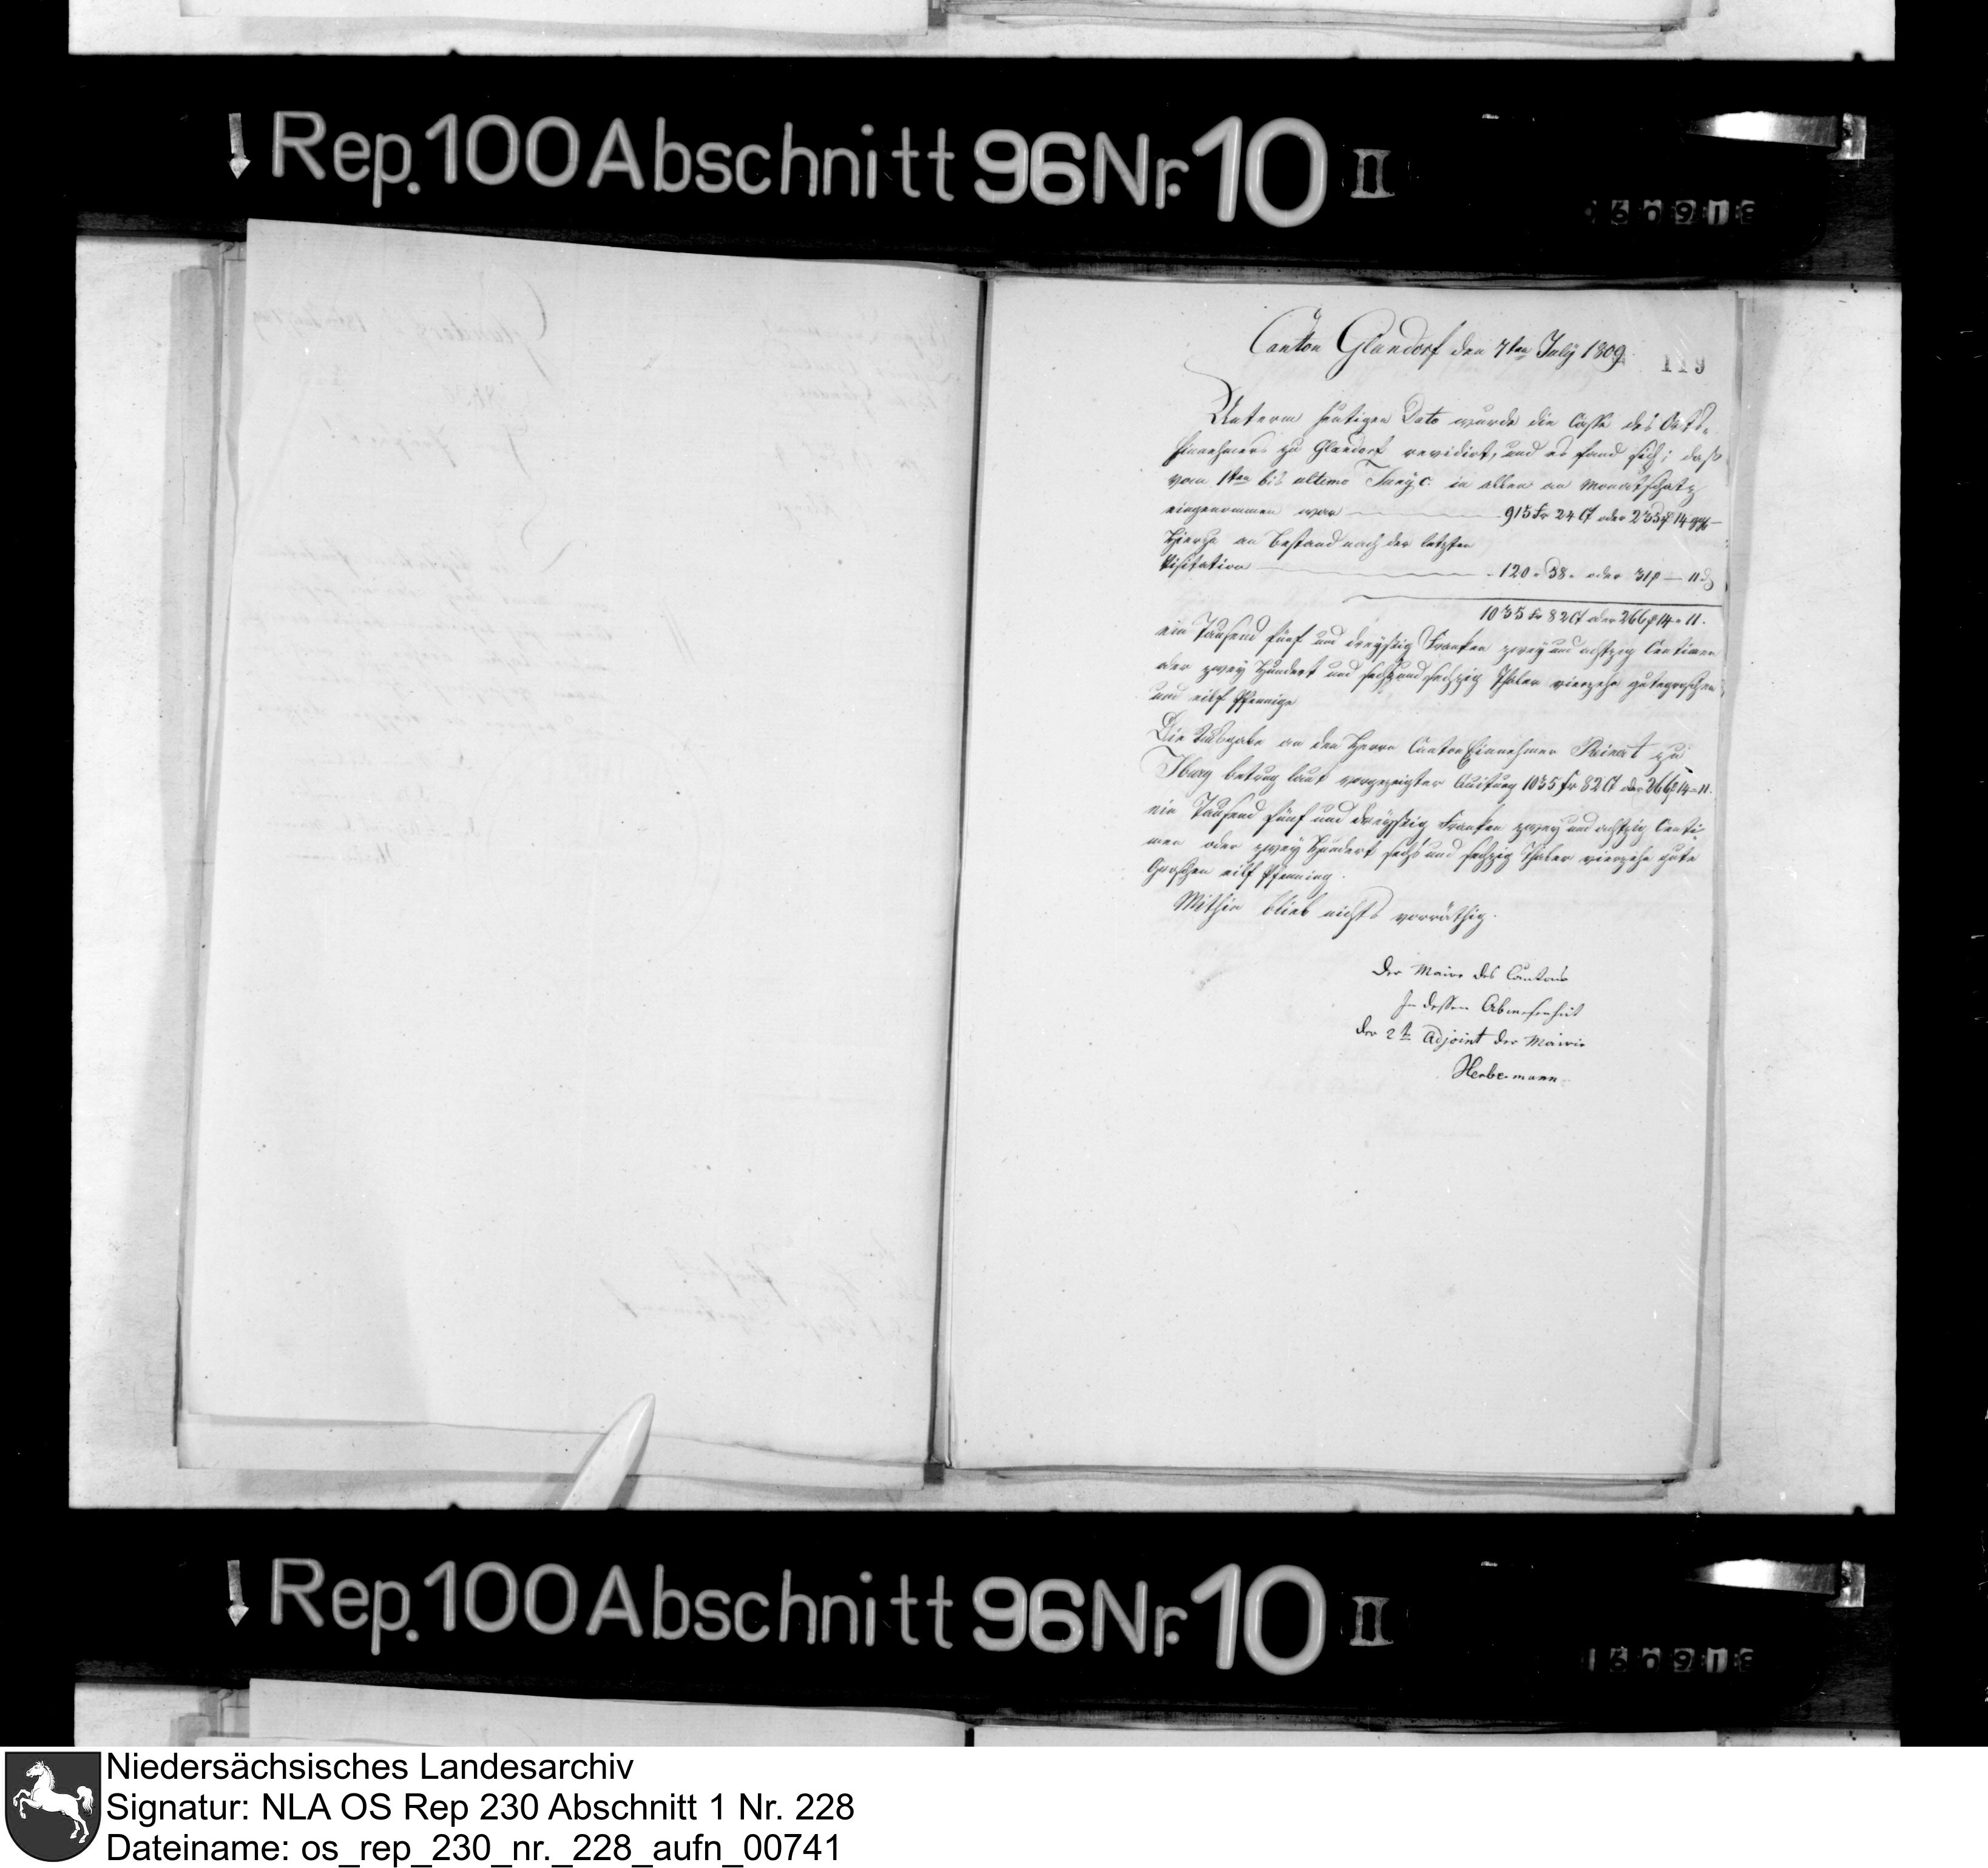 Rep. 100 Abschnitt 96 Nr. 10 II
160918
Canton Glandorf den 7ten July 1809
119
Unterm heutigen Dato wurde die Casse des Orts-
Einnehmers zu Glandorf revidirt, und es fand sich; daß
vom 1ten bis ultimo Juny c. in allen an Monatschatz
eingenommen war 915 Fr 24 Ct oder 235 14 ggr
Hierzu an Bestand nach der letzten
Visitation 120 " 58 " oder 31 — 11
1035 Fr 82 Ct oder 266 14 " 11.
ein Tausend fünf und dreyßig Franken zwey und achtzig Centimen
oder zwey Hundert und sechs und sechzig Thaler vierzehn gutegroschen
und eilf Pfennige
Die Ausgabe an den Herrn Canton Einnehmer zu
Iburg betrug laut vorgezeigter Quitung 1035 Fr 82 Ct oder 266 14 " 11.
ein Tausend fünf und dreyßig Franken zwey und achtzig Centi-
men oder zwey Hundert sechs und sechzig Thaler vierzehn gute
Groschen eilf Pfenning.
Mithin blieb nichts vorräthig.
Der Maire des Cantons
In dessen Abwesenheit
der 2te Adjoint der Mairie
Herbermann
Rep. 100 Abschnitt 96 Nr. 10 II
160918
Niedersächsisches Landesarchiv
Signatur: NLA OS Rep 230 Abschnitt 1 Nr. 228
Dateiname: os_rep_230_nr._228_aufn_00741